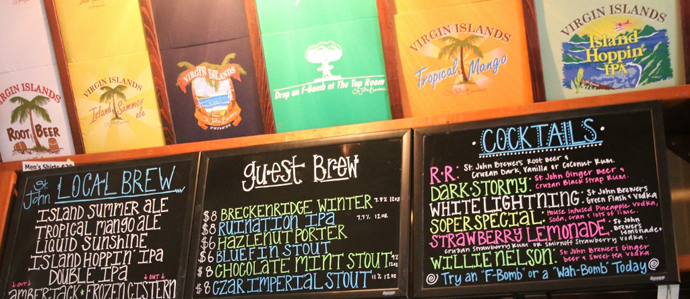 VIRGIN ISLANDS
ROOT BEER
VIRGIN ISLANDS
Island Summer
ale
VIRGIN ISLANDS
Drop an F-Bomb at The Tap Room
VIRGIN ISLANDS
Tropical Mango
VIRGIN ISLANDS
Island
Hoppin'
IPA
Men's Shirts
St John LOCAL BREW
ISLAND SUMMER ALE
TROPICAL MANGO ALE
LIQUID SUNSHINE
ISLAND HOPPIN' IPA
DOUBLE IPA
↓OUT↓ ↓OUT↓
AMBERJACK + FROZEN CISTERN
guest Brew
$8 BRECKENRIDGE WINTER 7.9% 12oz
$8 RUINATION IPA 7.7% 12oz
$6 HAZLENUT PORTER
$6 BLUEFIN STOUT
$8 CHOCOLATE MINT STOUT
$8 CZAR IMPERIAL STOUT 11% 12oz
COCKTAILS
R+R: St. John Brewers Root Beer &
Cruzan Dark, Vanilla or Coconut Rum.
DARK+STORMY: St. John Ginger Beer &
Cruzan Black Strap Rum.
WHITE LIGHTNING: St. John Brewer's
Green Flash + Vodka
SOPER SPECIAL: House Infused Pineapple Vodka,
Soda, Cran & lots of lime.
STRAWBERRY LEMONADE: St. John Brewers lemonade &
Cruzan Strawberry Rum or Smirnoff Strawberry Vodka.
WILLIE NELSON: St. John Brewers Ginger
Beer & Sweet tea Vodka
Try an "F-Bomb" or a "Wah-Bomb" Today